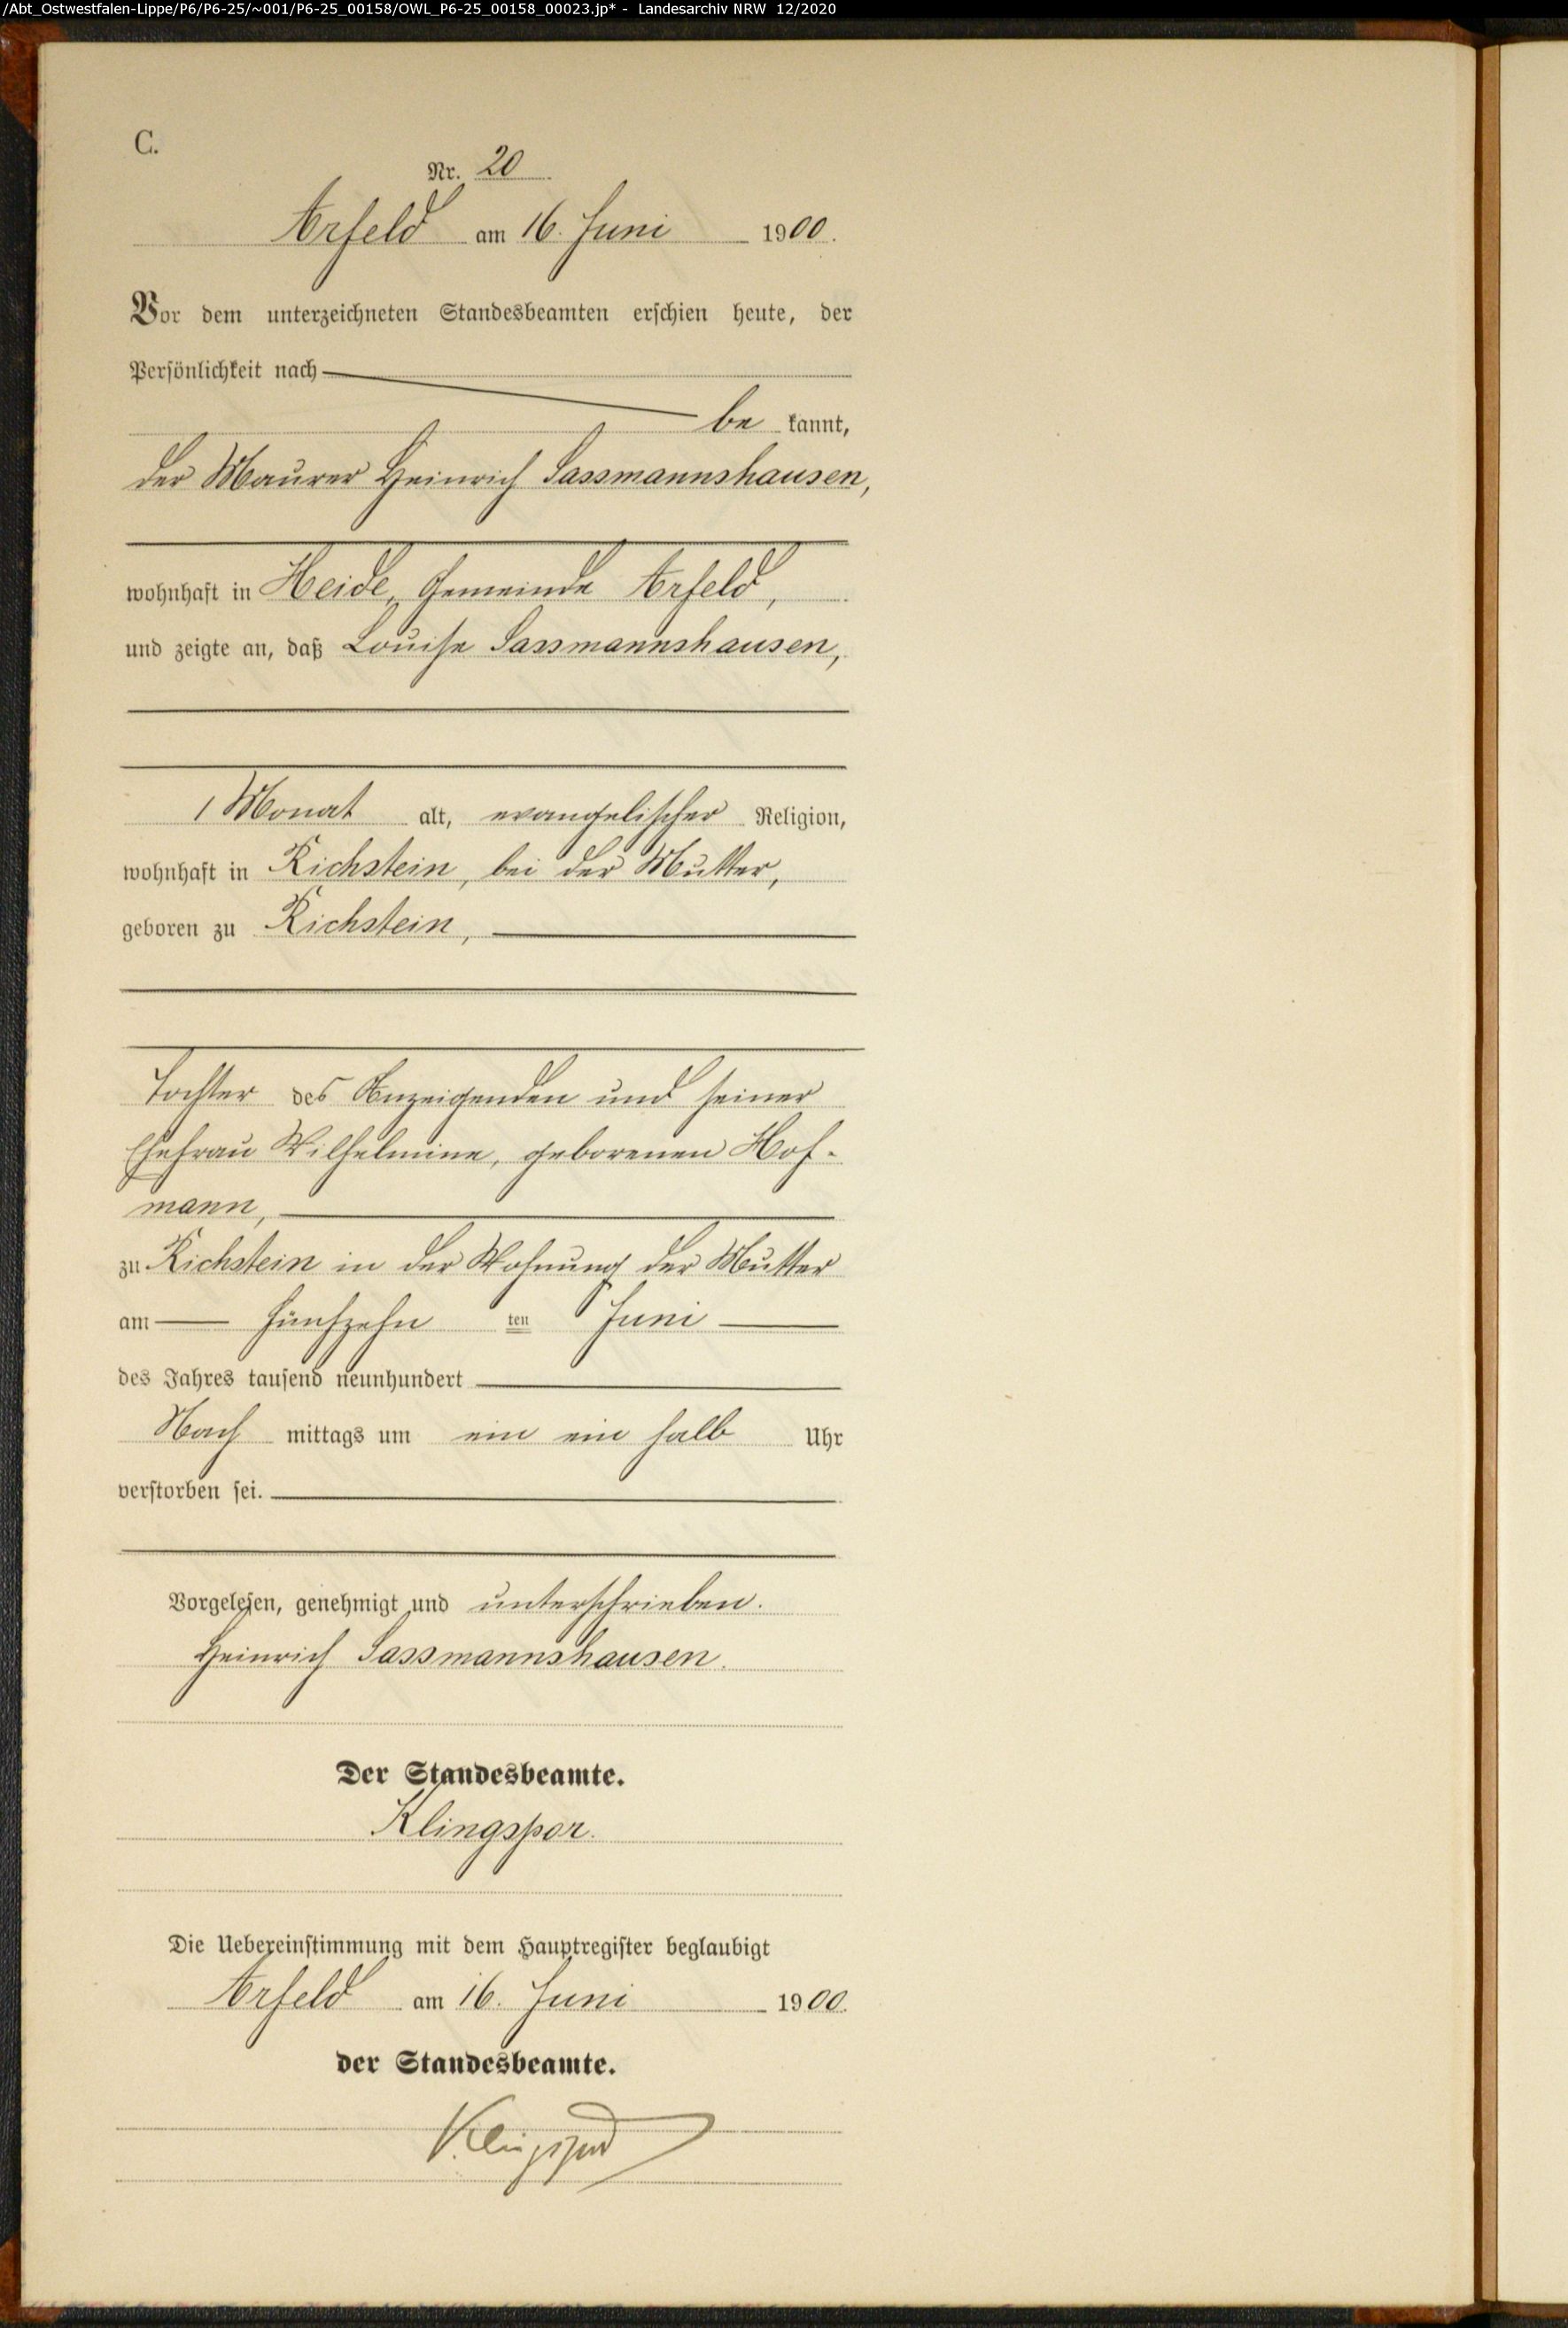 /Abt_Ostwestfalen-Lippe/P6/P6-25/~001/P6-25_00158/OWL_P6-25_00158_00023.jp* - Landesarchiv NRW 12/2020
C.
Nr. 20
Arfeld am 16. Juni 1900.
Vor dem unterzeichneten Standesbeamten erschien heute, der
Persönlichkeit nach
be kannt,
der Maurer Heinrich Sassmannshausen,
wohnhaft in Heide, Gemeinde Arfeld,
und zeigte an, daß Louise Sassmannshausen,
1 Monat alt, evangelischer Religion,
wohnhaft in Richstein, bei der Mutter,
geboren zu Richstein,
Tochter des Anzeigenden und seiner
Ehefrau Wilhelmine, geborenen Hof-
mann,
zu Richstein in der Wohnung der Mutter
am fünfzehn ten Juni
des Jahres tausend neunhundert
Nach mittags um ein ein halb Uhr
verstorben sei.
Vorgelesen, genehmigt und unterschrieben.
Heinrich Sassmannshausen.
Der Standesbeamte.
Klingspor.
Die Uebereinstimmung mit dem Hauptregister beglaubigt
Arfeld am 16. Juni 1900.
der Standesbeamte.
Klingspor